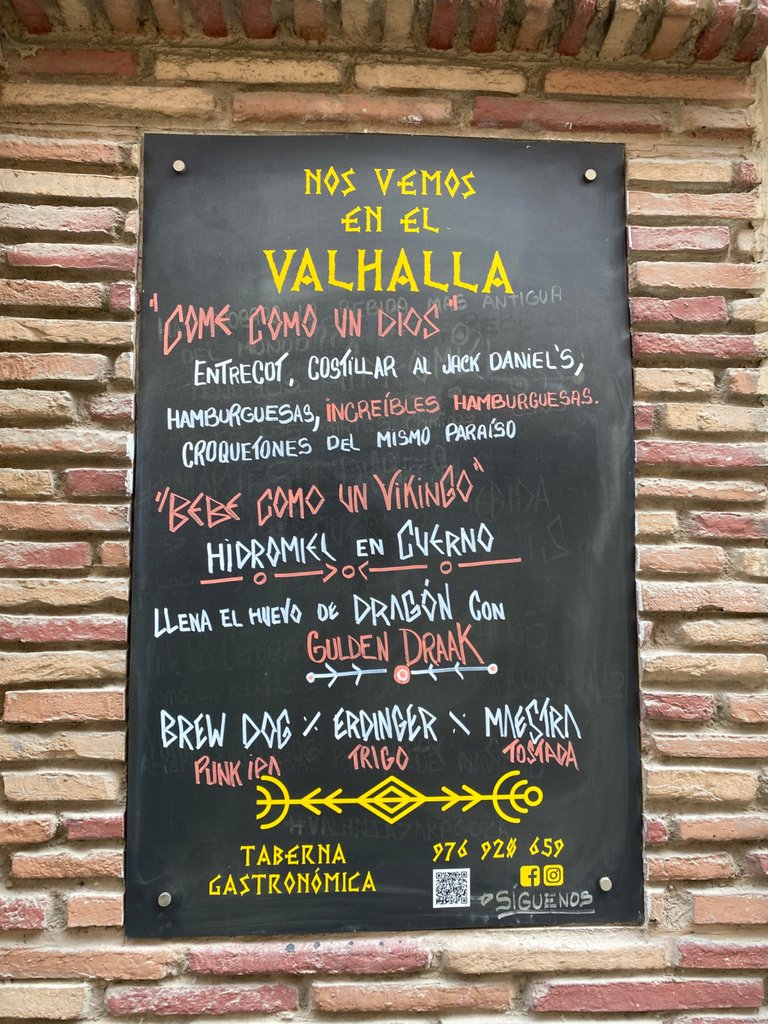 NOS VEMOS
EN EL
VALHALLA
"COME COMO UN DIOS"
ENTRECOT, COSTILLAR AL JACK DANIEL'S,
HAMBURGUESAS, INCREÍBLES HAMBURGUESAS.
CROQUETONES DEL MISMO PARAÍSO
"BEBE COMO UN VIKINGO"
HIDROMIEL EN CUERNO
LLENA EL HUEVO DE DRAGÓN CON
GULDEN DRAAK
BREW DOG ٪ ERDINGER ⸓ MAESTRA
PUNK IPA TRIGO TOSTADA
TABERNA
GASTRONÓMICA
976 920 659
SÍGUENOS